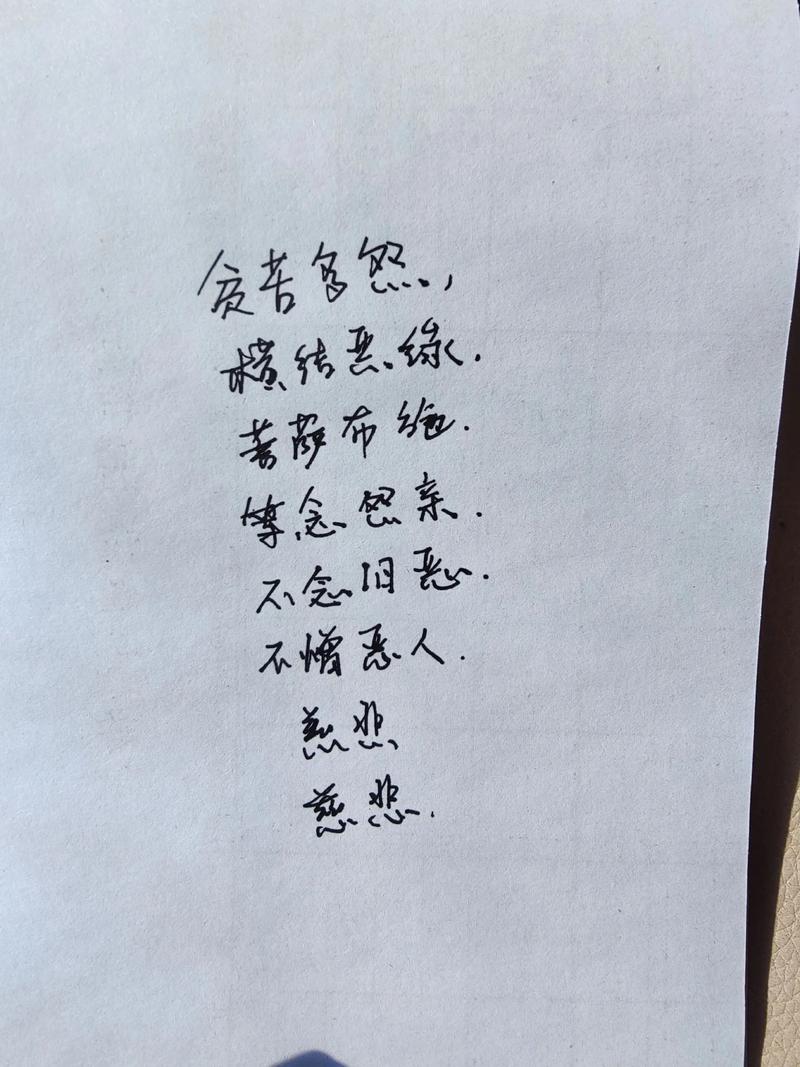 贫苦多怨,
横结恶缘.
菩萨布施.
等念怨亲.
不念旧恶.
不憎恶人.
慈悲
慈悲.